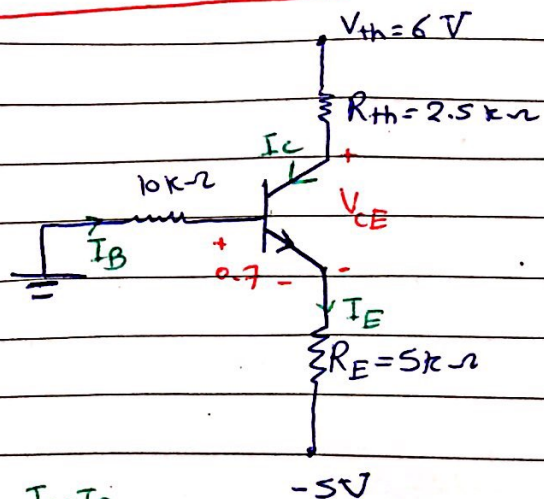 Vth = 6 V
Rth = 2.5 kΩ
IC
+
10 kΩ
VCE
IB
+
0.7 -
-
IE
RE = 5kΩ
-5V